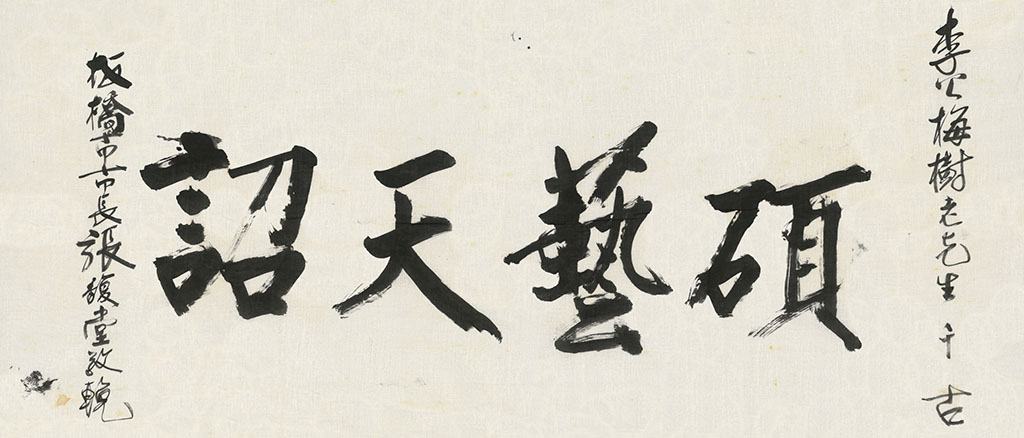 李公梅樹老先生 千古
碩藝天詔
板橋市市長張馥堂敬輓